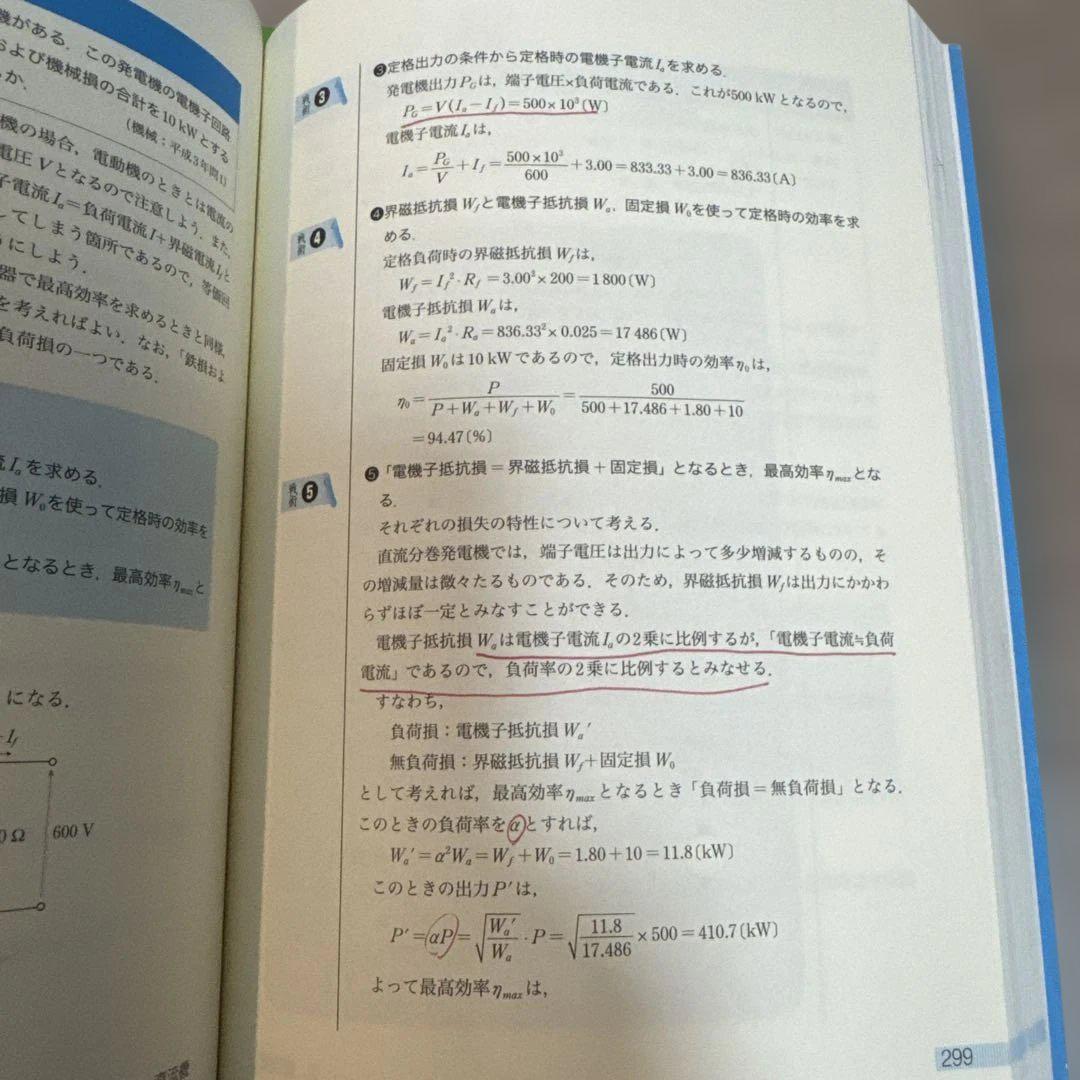 機がある．この発電機の電機子回路
および機械損の合計を10kWとする
か．
(機械：平成3年問1)
機の場合，電動機のときとは電流の
電圧 V となるので注意しよう．また，
子電流Ia＝負荷電流I＋界磁電流Ifと
してしまう箇所であるので，等価回
うにしよう．
器で最高効率を求めるときと同様，
を考えればよい．なお，「鉄損およ
負荷損の一つである．
流Iaを求める．
損 W0を使って定格時の効率を
となるとき，最高効率ηmaxと
になる．
If
0Ω
600 V
直流機
戦術❸
❸定格出力の条件から定格時の電機子電流Iaを求める．
発電機出力PGは，端子電圧×負荷電流である．これが500kWとなるので，
PG＝V(Ia－If)＝500×10³(W)
電機子電流Iaは，
Ia＝PG/V＋If＝500×10³/600＋3.00＝833.33＋3.00＝836.33(A)
戦術❹
❹界磁抵抗損Wfと電機子抵抗損Wa，固定損W0を使って定格時の効率を求
める．
定格負荷時の界磁抵抗損Wfは，
Wf＝If²・Rf＝3.00²×200＝1800(W)
電機子抵抗損Waは，
Wa＝Ia²・Ra＝836.33²×0.025＝17486(W)
固定損W0は10kWであるので，定格出力時の効率η0は，
η0＝P/(P＋Wa＋Wf＋W0)＝500/(500＋17.486＋1.80＋10)
＝94.47(%)
戦術❺
❺「電機子抵抗損＝界磁抵抗損＋固定損」となるとき，最高効率ηmaxとな
る．
それぞれの損失の特性について考える．
直流分巻発電機では，端子電圧は出力によって多少増減するものの，そ
の増減量は微々たるものである．そのため，界磁抵抗損Wfは出力にかかわ
らずほぼ一定とみなすことができる．
電機子抵抗損Waは電機子電流Iaの2乗に比例するが，「電機子電流≒負荷
電流」であるので，負荷率の2乗に比例するとみなせる．
すなわち，
負荷損：電機子抵抗損Wa′
無負荷損：界磁抵抗損Wf＋固定損W0
として考えれば，最高効率ηmaxとなるとき「負荷損＝無負荷損」となる．
このときの負荷率をαとすれば，
Wa′＝α²Wa＝Wf＋W0＝1.80＋10＝11.8(kW)
このときの出力P′は，
P′＝αP＝√(Wa′/Wa)・P＝√(11.8/17.486)×500＝410.7(kW)
よって最高効率ηmaxは，
299